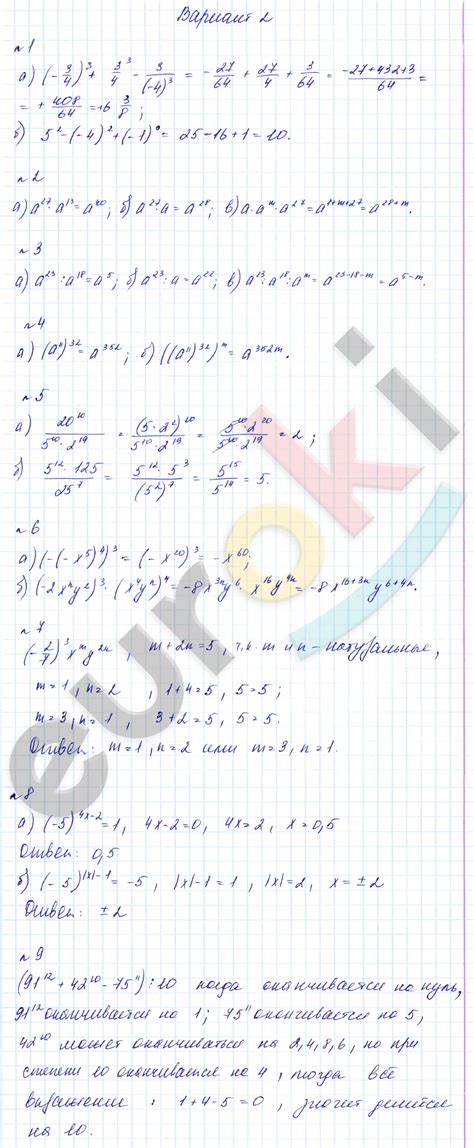 Вариант 2
№1
а) (-3/4)³ + 3³/4 - 3/(-4)³ = -27/64 + 27/4 + 3/64 = (-27+432+3)/64 =
= +408/64 = +6 3/8;
б) 5² - (-4)² + (-1)⁰ = 25 - 16 + 1 = 10.
№2
а) a²⁷·a¹³ = a⁴⁰; б) a²⁷·a = a²⁸; в) a·aᵐ·a²⁷ = a¹⁺ᵐ⁺²⁷ = a²⁸⁺ᵐ.
№3
а) a²³:a¹⁸ = a⁵; б) a²³:a = a²²; в) a²³:a¹⁸:aᵐ = a²³⁻¹⁸⁻ᵐ = a⁵⁻ᵐ.
№4
а) (a¹¹)³² = a³⁵²; б) ((a¹¹)³²)ᵐ = a³⁵²ᵐ.
№5
а) 20¹⁰/(5¹⁰·2¹⁹) = (5·2²)¹⁰/(5¹⁰·2¹⁹) = (5¹⁰·2²⁰)/(5¹⁰·2¹⁹) = 2;
б) (5¹²·125)/25⁷ = (5¹²·5³)/(5²)⁷ = 5¹⁵/5¹⁴ = 5.
№6
а) (-(-x⁵)⁴)³ = (-x²⁰)³ = -x⁶⁰;
б) (-2xⁿy²)³·(x⁴yⁿ)⁴ = -8x³ⁿy⁶·x¹⁶y⁴ⁿ = -8x¹⁶⁺³ⁿy⁶⁺⁴ⁿ.
№7
(-2/7)³xᵐy²ⁿ, m+2n=5, т.к. m и n - натуральные,
m=1, n=2, 1+4=5, 5=5;
m=3, n=1, 3+2=5, 5=5.
Ответ: m=1, n=2 или m=3, n=1.
№8
а) (-5)⁴ˣ⁻² = 1, 4x-2=0, 4x=2, x=0,5
Ответ: 0,5
б) (-5)^(|x|-1) = -5, |x|-1=1, |x|=2, x=±2
Ответ: ±2
№9
(91¹² + 42¹⁰ - 75¹¹) : 10 когда оканчивается на нуль,
91¹² оканчивается на 1; 75¹¹ оканчивается на 5,
42¹⁰ может оканчиваться на 2,4,8,6, но при
степени 10 оканчивается на 4, тогда всё
выражение : 1+4-5=0, значит делится
на 10.
euroki